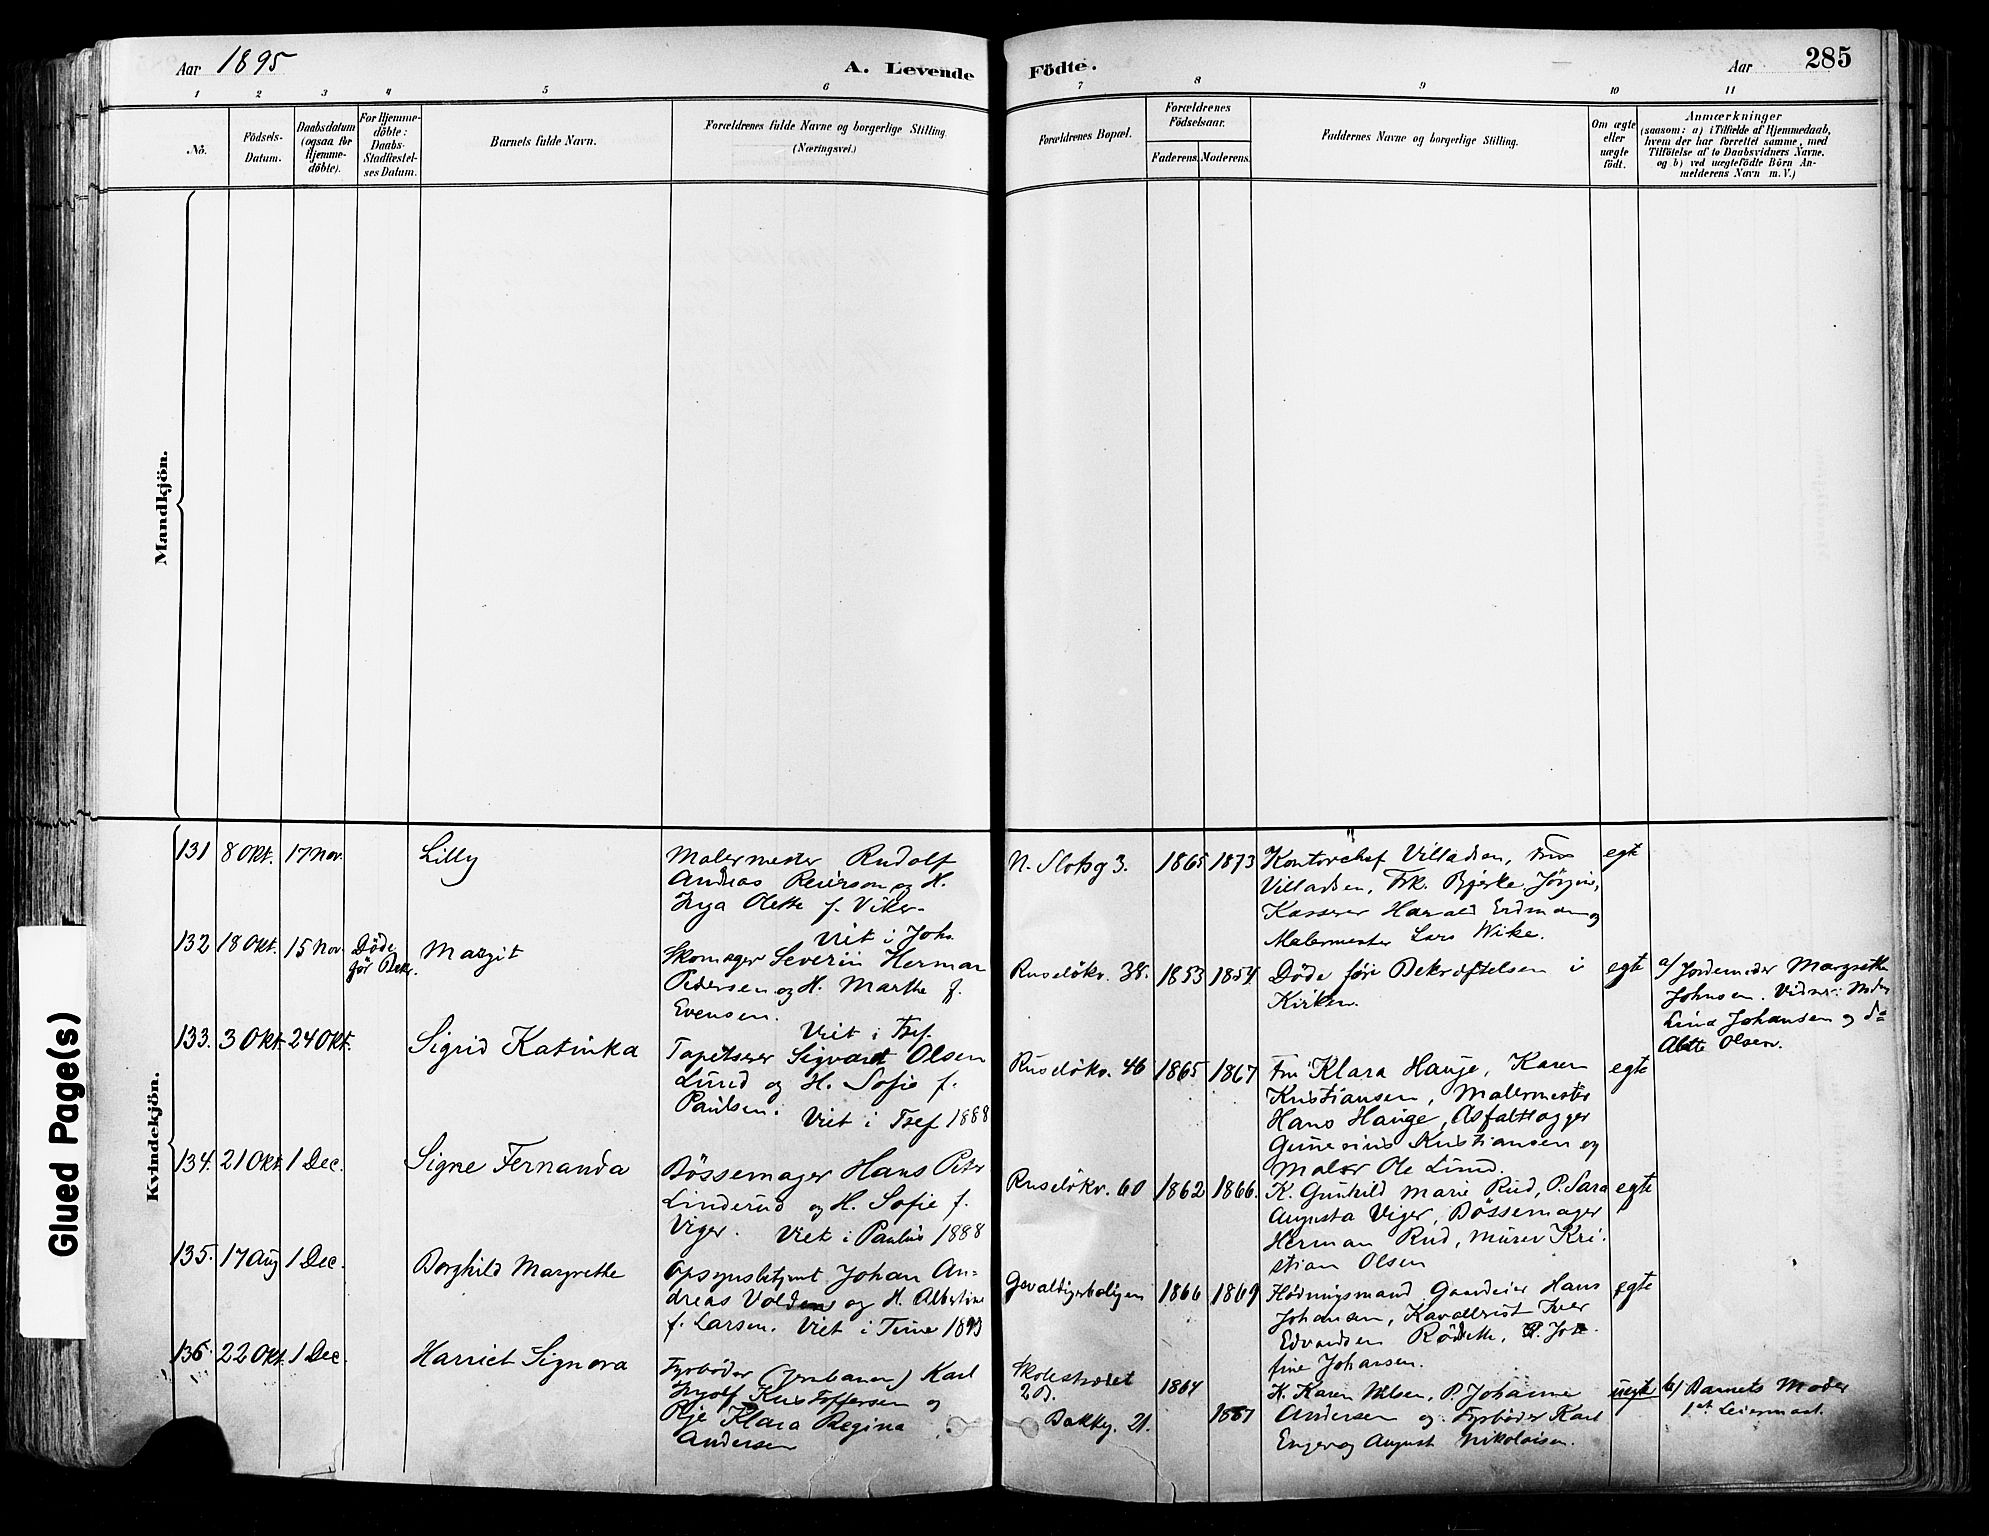 Aar 1895
A. Levende
Födte.
Aar
285
1 2 3 4 5 6 7 8 9 10 11
No.
Födsels-
Datum.
Daabsdatum
(ogsaa for
Hjemme-
döbte).
For Hjemme-
döbte:
Daabs-
Stadfæstel-
ses Datum.
Barnets fulde Navn.
Forældrenes fulde Navne og borgerlige Stilling.
(Næringsvei.)
Forældrenes Bopæl.
Forældrenes
Födselsaar.
Faderens. Moderens.
Faddernes Navne og borgerlige Stilling.
Om ægte
eller
uægte
födt.
Anmærkninger
(saasom: a) i Tilfælde af Hjemmedaab,
hvem der har forrettet samme, med
Tilföielse af to Daabsvidners Navne,
og b) ved uægtefödte Börn An-
melderens Navn m. V.)
Mandkjön.
Kvindekjön.
Glued Page(s)
131 8 Okt. 17 Nov. Lilly
Malermester Rudolf
Andreas Reierson og H.
Inga Olette f. Viker-
Viet i Joh.
N. Slotsg 3. 1865 1873
Kontorchef Villadsen, Frue
Villadsen, Frk. Bjerke Jörgine,
Kasserer Harald Erdman og
Malermester Lars Wike.
egte
132 18 Okt. 15 Nov. Döde
för Bekr.
Margit
Skomager Severin Herman
Pedersen og H. Marthe f.
Evensen.
Viet i Tref.
Ruselökv. 38. 1853 1854
Döde för Bekræftelsen i
Kirken.
egte
a/ Jordemoder Margrethe
Johnsen. Vidner: Moder
Lina Johansen og do
Alette Olsen.
133. 3 Okt. 24 Okt. Sigrid Katinka
Tapetserer Sigvart Olsen
Lund og H. Sofie f.
Paulsen.
Viet i Tref 1888
Ruselökv. 46 1865 1867
Fru Klara Hauge, Karen
Kristiansen, Malermester
Hans Hauge, Asfaltlægger
Gunerius Kristiansen og
Maler Ole Lund.
egte
134. 21 Okt. 1 Dec. Signe Fernanda
Bössemager Hans Peter
Linderud og H. Sofie f.
Viger. Viet i Paulus 1888
Ruselökv. 60 1862 1866.
K. Gunhild Marie Rud, P. Sara
Augusta Viger, Bössemager
Herman Rud, Murer Kri-
stian Olsen
egte
135. 17 Aug 1 Dec. Borghild Margrethe
Opsynsbetjent Johan An-
dreas Volden og H. Albertine
f. Larsen. Viet i Trine 1893
Gevaldigerboligen 1866 1869
Hödningsmand Gaardeier Hans
Johansen, Kavallerist Iver
Edvardsen Rödseth, P. Jo-
fine Johansen.
egte
136. 22 Okt. 1 Dec. Harriet Signora
Fyrböder (Jernbanen) Karl
Ingolf Kristoffersen og
Pige Klara Regina
Andersen
Skolestrædet
2 B. 1864
Bakkeg. 21. 1867
H. Karen Nilsen, P. Johanne
Andersen og Fyrböder Karl
Enger og August Nikolaisen.
uegte
b/ Barnets Moder
1st Leiermaal.